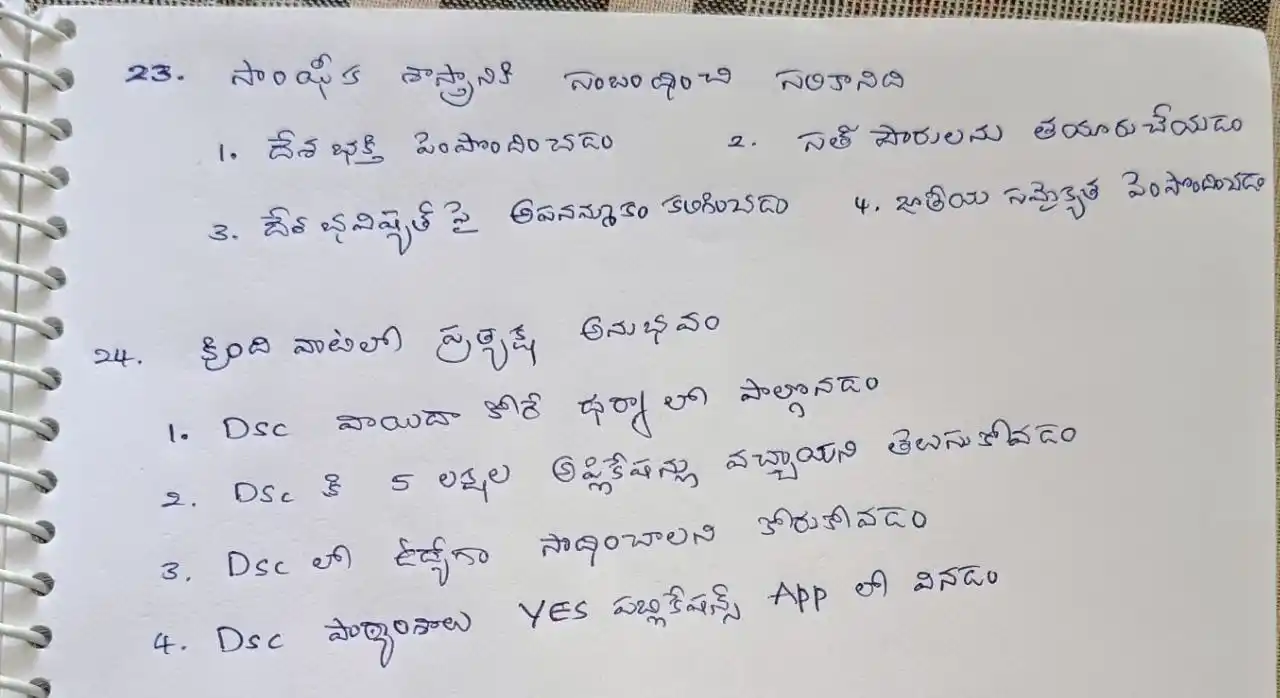 23. సాంఘీక శాస్త్రానికి సంబంధించి సరికానిది
1. దేశ భక్తి పెంపొందించడం 2. సత్ పౌరులను తయారు చేయడం
3. దేశ భవిష్యత్ పై అపనమ్మకం కలిగించడం 4. జాతీయ సమైక్యత పెంపొందించడం
24. క్రింది వాటిలో ప్రత్యక్ష అనుభవం
1. Dsc వాయిదా కోరే ధర్నా లో పాల్గొనడం
2. Dsc కి 5 లక్షల అప్లికేషన్లు వచ్చాయని తెలుసుకోవడం
3. Dsc లో ఉద్యోగం సాధించాలని కోరుకోవడం
4. Dsc పాఠ్యాంశాలు YES పబ్లికేషన్స్ App లో వినడం